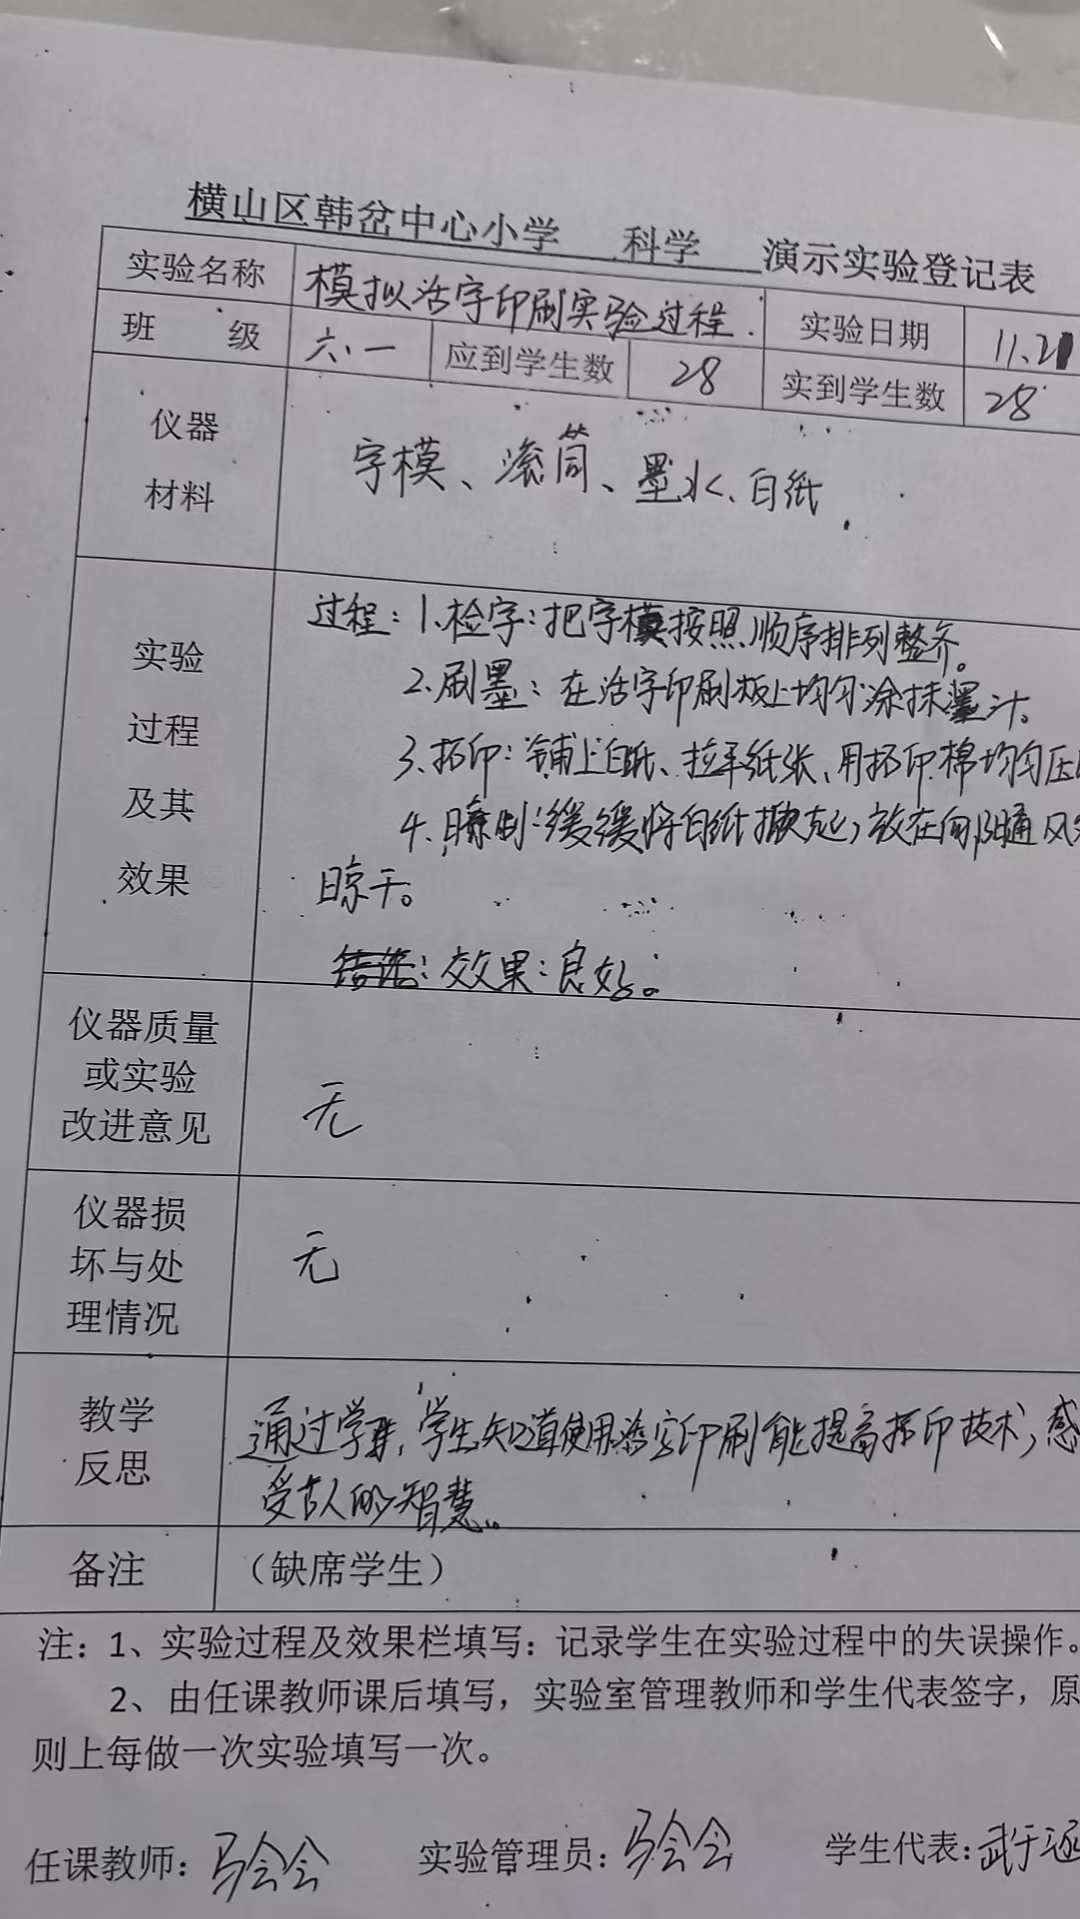 横山区韩岔中心小学 科学 演示实验登记表
实验名称 模拟活字印刷实验过程. 实验日期 11.21
班 级 六.一 应到学生数 28 实到学生数 28
仪器
材料
字模、滚筒、墨水、白纸
实验
过程
及其
效果
过程：1.检字：把字模按照顺序排列整齐。
2.刷墨：在活字印刷板上均匀涂抹墨汁。
3.拓印：铺上白纸、拉平纸张、用拓印棉均匀压
4.晾制：缓缓将白纸揿起，放在向阳通风
晾干。
结论：效果：良好。
仪器质量
或实验
改进意见
无
仪器损
坏与处
理情况
无
教学
反思
通过学习，学生知道使用活字印刷能提高拓印技术，感
受古人的智慧。
备注 （缺席学生）
注：1、实验过程及效果栏填写：记录学生在实验过程中的失误操作。
2、由任课教师课后填写，实验室管理教师和学生代表签字，原
则上每做一次实验填写一次。
任课教师：马会会 实验管理员：马会会 学生代表：武于涵